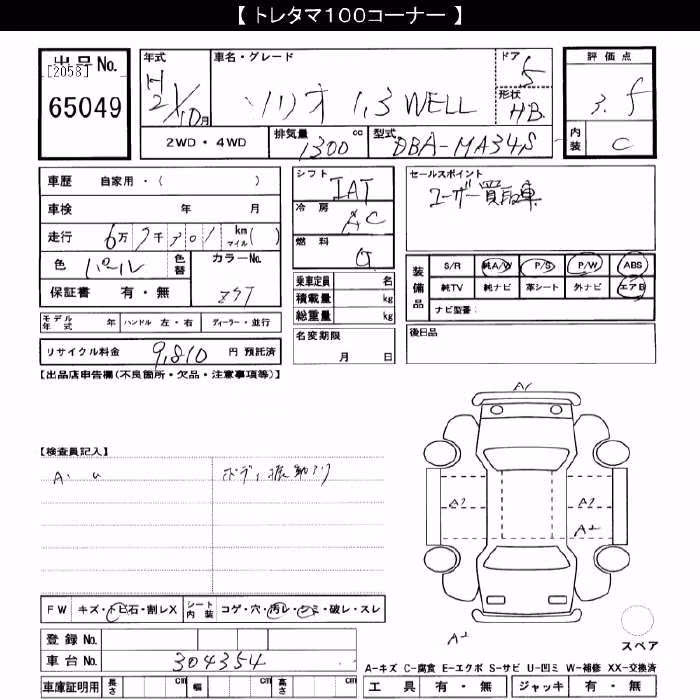 【 トレタマ100コーナー 】
出品No.
[2058]
65049
年式
H21/10月
車名・グレード
ソリオ 1,3 WELL
ドア
5
形状
HB
評価点
3.5
内装
C
2WD・4WD
排気量
1300 cc
型式
DBA-MA34S
車歴 自家用・( )
車検 年 月
走行 6万7千 km マイル( )
色 パール 色替
カラーNo.
Z7T
保証書 有・無
シフト
IAT
冷房
AC
燃料
G
乗車定員 名
積載量 kg
総重量 kg
セールスポイント
ユーザー買取車
装備品
S/R 純A/W P/S P/W ABS
純TV 純ナビ 革シート 外ナビ エアB
ナビ型番:
モデル年式 年 ハンドル 左・右 ディーラー・並行
リサイクル料金 9,810 円 預託済
名変期限
月 日
後日品
【出品店申告欄(不良箇所・欠品・注意事項等)】
A1
【検査員記入】
A. u
ボディ振動アリ
A2 A2
A2
A2
FW キズ・トビ石・割レX
シート内装 コゲ・穴・汚レ・シミ・破レ・スレ
登録No.
車台No. 304354
スペア
A-キズ C-腐食 E-エクボ S-サビ U-凹ミ W-補修 XX-交換済
車庫証明用 長さ cm 幅 cm 高さ cm
工具 有・無 ジャッキ 有・無